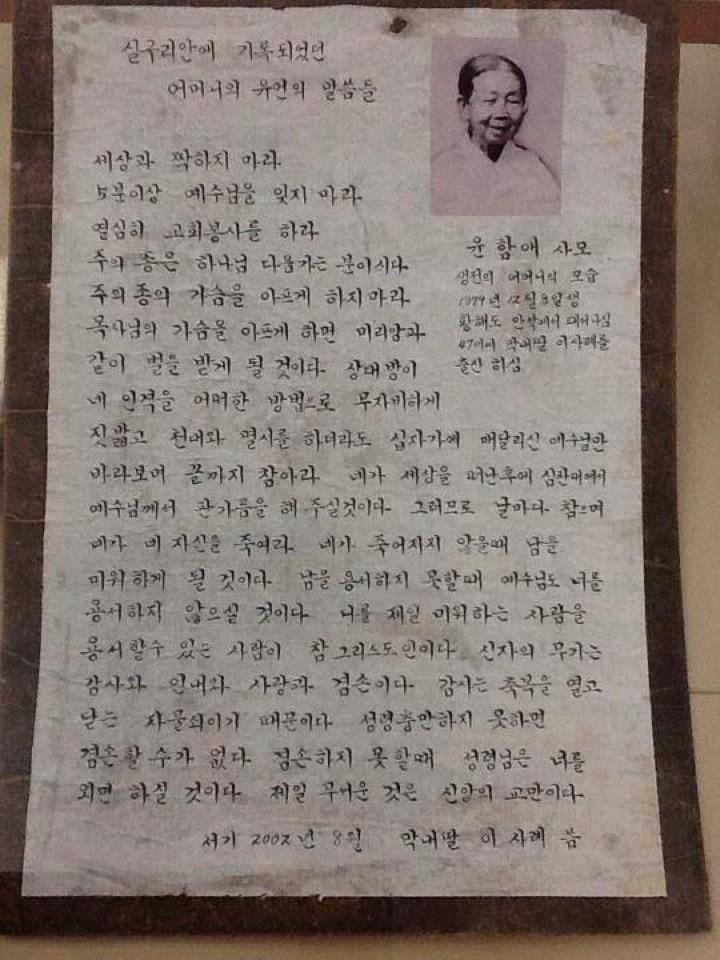 실구리안에 기록되었던
어머니의 유언의 말씀들
세상과 짝하지 마라
5분이상 예수님을 잊지 마라
열심히 교회봉사를 하라
주의 종은 하나님 다음가는 분이시다
주의 종의 가슴을 아프게 하지마라
목사님의 가슴을 아프게 하면 미리암과
같이 벌을 받게 될 것이다 상대방이
네 인격을 어떠한 방법으로 무자비하게
짓밟고 천대와 멸시를 하더라도 십자가에 매달리신 예수님만
바라보며 끝까지 참아라 네가 세상을 떠난후에 심판대에서
예수님께서 판가름을 해 주실것이다 그러므로 날마다 참으며
네가 네 자신을 죽여라 네가 죽어지지 않을때 남을
미워하게 될 것이다 남을 용서하지 못할때 예수님도 너를
용서하지 않으실 것이다 너를 제일 미워하는 사람을
용서할수 있는 사람이 참 그리스도인이다 신자의 무기는
감사와 인내와 사랑과 겸손이다 감사는 축복을 열고
닫는 자물쇠이기 때문이다 성령충만하지 못하면
겸손할 수가 없다 겸손하지 못할때 성령님은 너를
외면 하실 것이다 제일 무서운 것은 신앙의 교만이다
서기 2002년 8월 막내딸 이 사례 씀
윤 함애 사모
생전의 어머니의 모습
1879년 12월 3일생
황해도 안악에서 태어나심
47세에 막내딸 이사례를
출산 하심